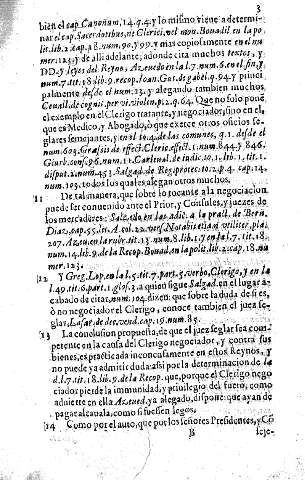 3
bien el cap. Canonum, 14. q. 4. y lo mismo viene a determi-
nar el cap. Sacerdotibus, ne Clerici, vel mon. Bouad. en la po
lit. lib. 2. cap. 18. num. 90. y 99. y mas copiosamente en el nu
mer. 123. y de alli adelante, adonde cita muchos textos, y
DD. y leyes del Reyno, Azeuedo en la l. 7. num. 6. en el fin, y
num. 7. tit. 18. lib. 9. recop. Ioan. Gut. de gabel. q. 94. y princi
palmente desde el num. 23. y alegando tambien muchos,
Ceuall. de cognit. per vi. violen. p. 2. q. 64. Que no solo pone
el exemplo en el Clerigo tratante, y negociador, sino en el
que es Medico, y Abogado, ò que exerce otros oficios se
glares semejantes, y en el 10. 4. de las comunes, q. 1. desde el
num. 603. Grassis de effect. Cleric. effect. 1. num. 844. y 846.
Giurb. cons. 96. num. 11. Carleual. de indic. to. 1. lib. 1. tit. 1.
disput. 2. num. 453. Salgad. de Reg. protec. to. 2. p. 4. cap. 14.
num. 103. todos los quales alegan otros muchos.
11 De tal manera, que sobre lo tocante a la negociacion
puede ser conuenido ante el Prior, y Consules, y juezes de
los mercaderes: Salzedo en las adic. a la pract. de Bern.
Diaz, pag. 55. lit. A. col. 22. vers. Nota bis etiam vtiliter, pla.
207. Azeu. en la rubr. tit. 13. num. 8. lib. 1. y en la l. 7. tit. 18.
num. 14. lib. 9. de la Recop. Bouad. en la polit. lib. 2. cap. 18. nu
mer. 123.
12 Y Greg. Lop. en la l. 5. tit. 7. part. 5. verbo, Clerigo, y en la
l. 49. tit. 6. part. 1. glos. 3. a quien sigue Salgad. en el lugar a
cabado de citar, num. 104. dizen: que sobre la duda de si es,
ò no negociador el Clerigo, conoce tambien el juez se-
glar, Lasar. de dec. vend. cap. 19. num. 85.
13 La conclusion propuesta, de que el juez seglar sea com-
petente en la causa del Clerigo negociador, y contra sus
bienes, es practicada inconcusamente en estos Reynos, y
no puede ya admitir duda: assi por la determinacion de la
d. l. 7. tit. 18. lib. 9. de la Recop. que, porque el Clerigo nego
ciador pierde la inmunidad, y priuilegio del fuero, como
aduierte en ella Azeued. ya alegado, dispone: que ayan de
pagar alcauala, como si fuessen legos.
14 Como por el auto, que por los señores Presidentes, y Cō
B seje-